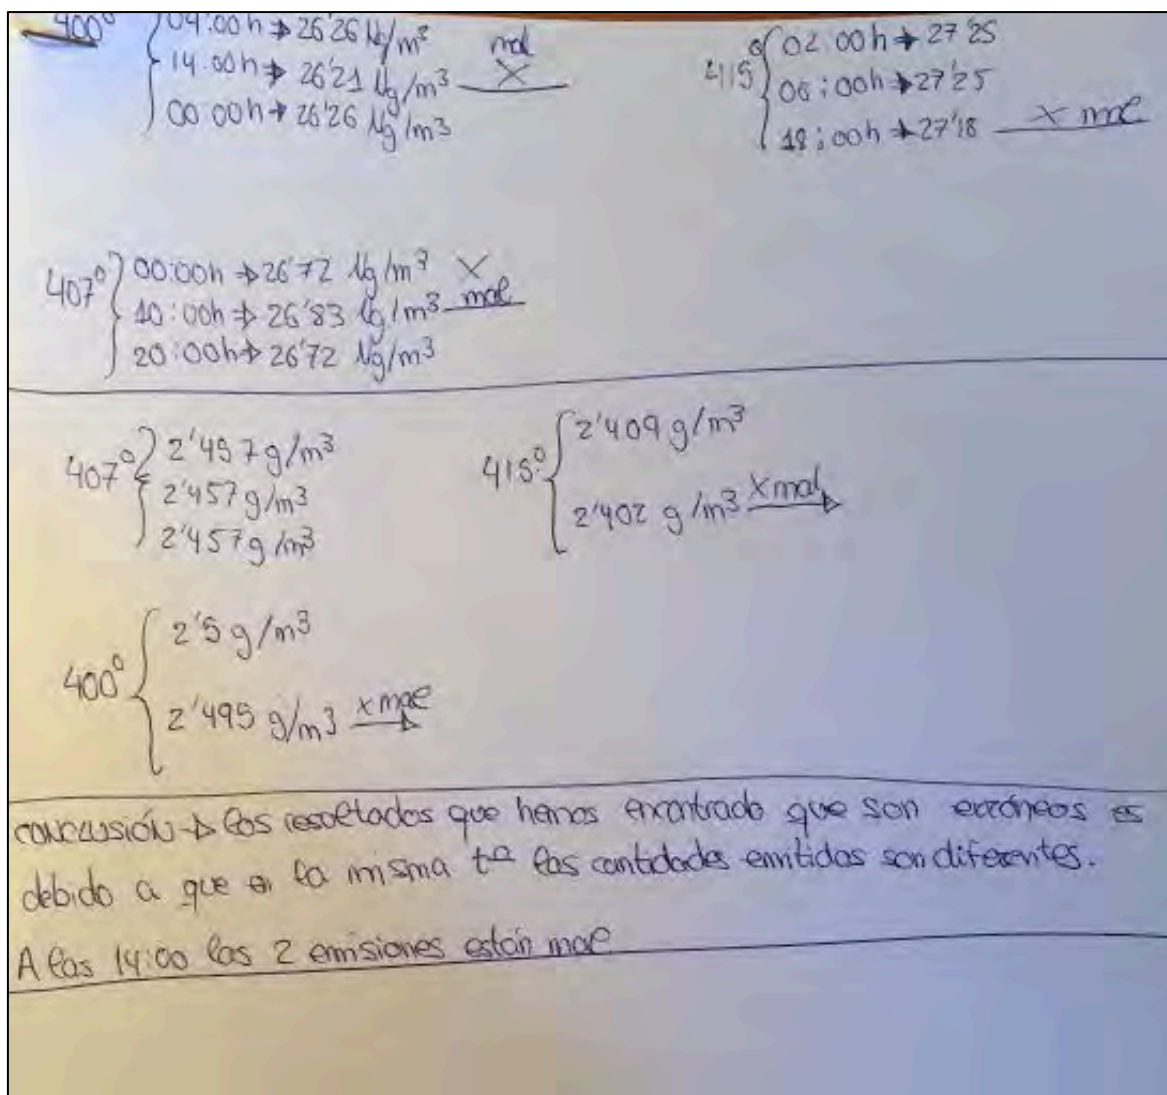 400º
04:00h → 26'26 Ng/m³
14:00h → 26'21 Ng/m³ mal X
00:00h → 26'26 Ng/m3
415º
02 00h → 27'25
06:00h → 27'25
18:00h → 27'18 X mal
407º
00:00h → 26'72 Ng/m³ X
10:00h → 26'83 Ng/m3 mal
20:00h → 26'72 Ng/m3
407º
2'457g/m3
2'457g/m3
2'457g/m3
415º
2'409 g/m3
2'402 g/m3 X mal
400º
2'5 g/m3
2'495 g/m3 x mal
CONCLUSIÓN → los resultados que hemos encontrado que son erróneos es
debido a que en la misma tª las cantidades emitidas son diferentes.
A las 14:00 las 2 emisiones están mal